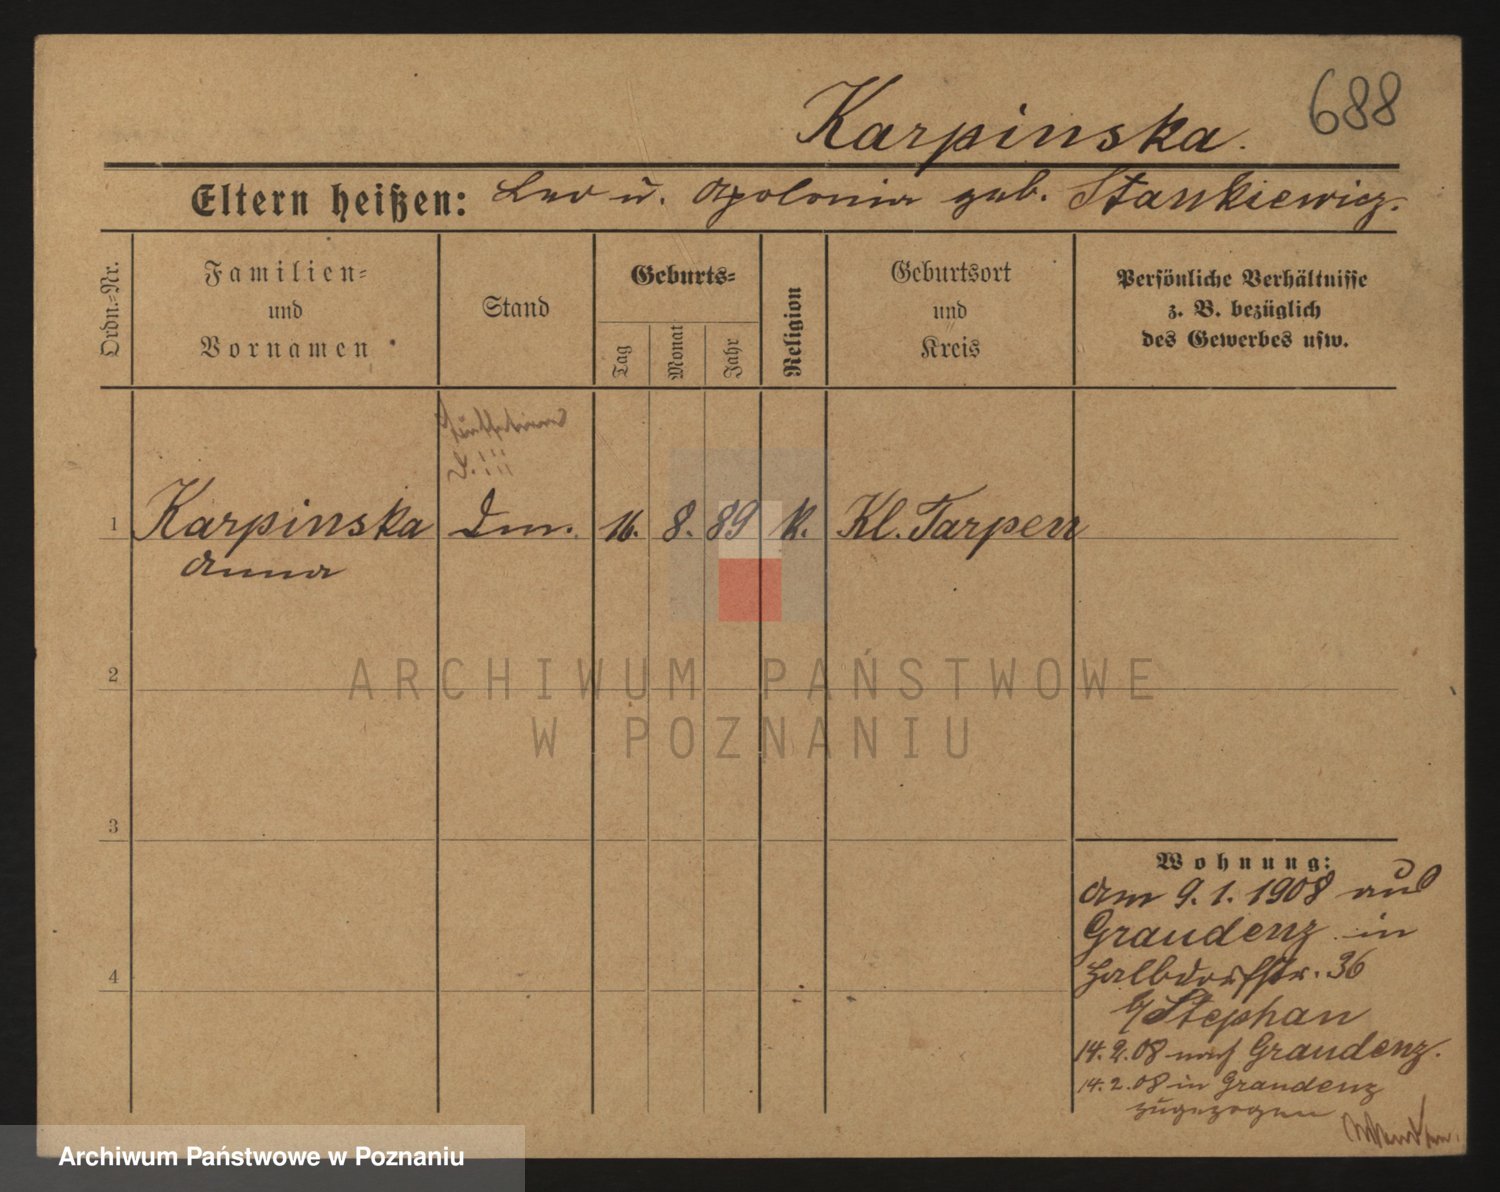 688
Karpinska.
Eltern heißen: Leo u. Apolonia geb. Stankiewicz.
Ordn.-Nr.
Familien-
und
Vornamen
Stand
Geburts-
Tag
Monat
Jahr
Religion
Geburtsort
und
Kreis
Persönliche Verhältnisse
z. B. bezüglich
des Gewerbes usw.
1 Karpinska 16. 8. 89 k. Kl. Tarpen
Anna
2
3
4
Wohnung:
am 9. 1. 1908 aus
Graudenz in
Halbdorfstr. 36
b/Stephan
14. 2. 08 nach Graudenz.
14. 2. 08 in Graudenz
zugezogen
ARCHIWUM PAŃSTWOWE
W POZNANIU
Archiwum Państwowe w Poznaniu